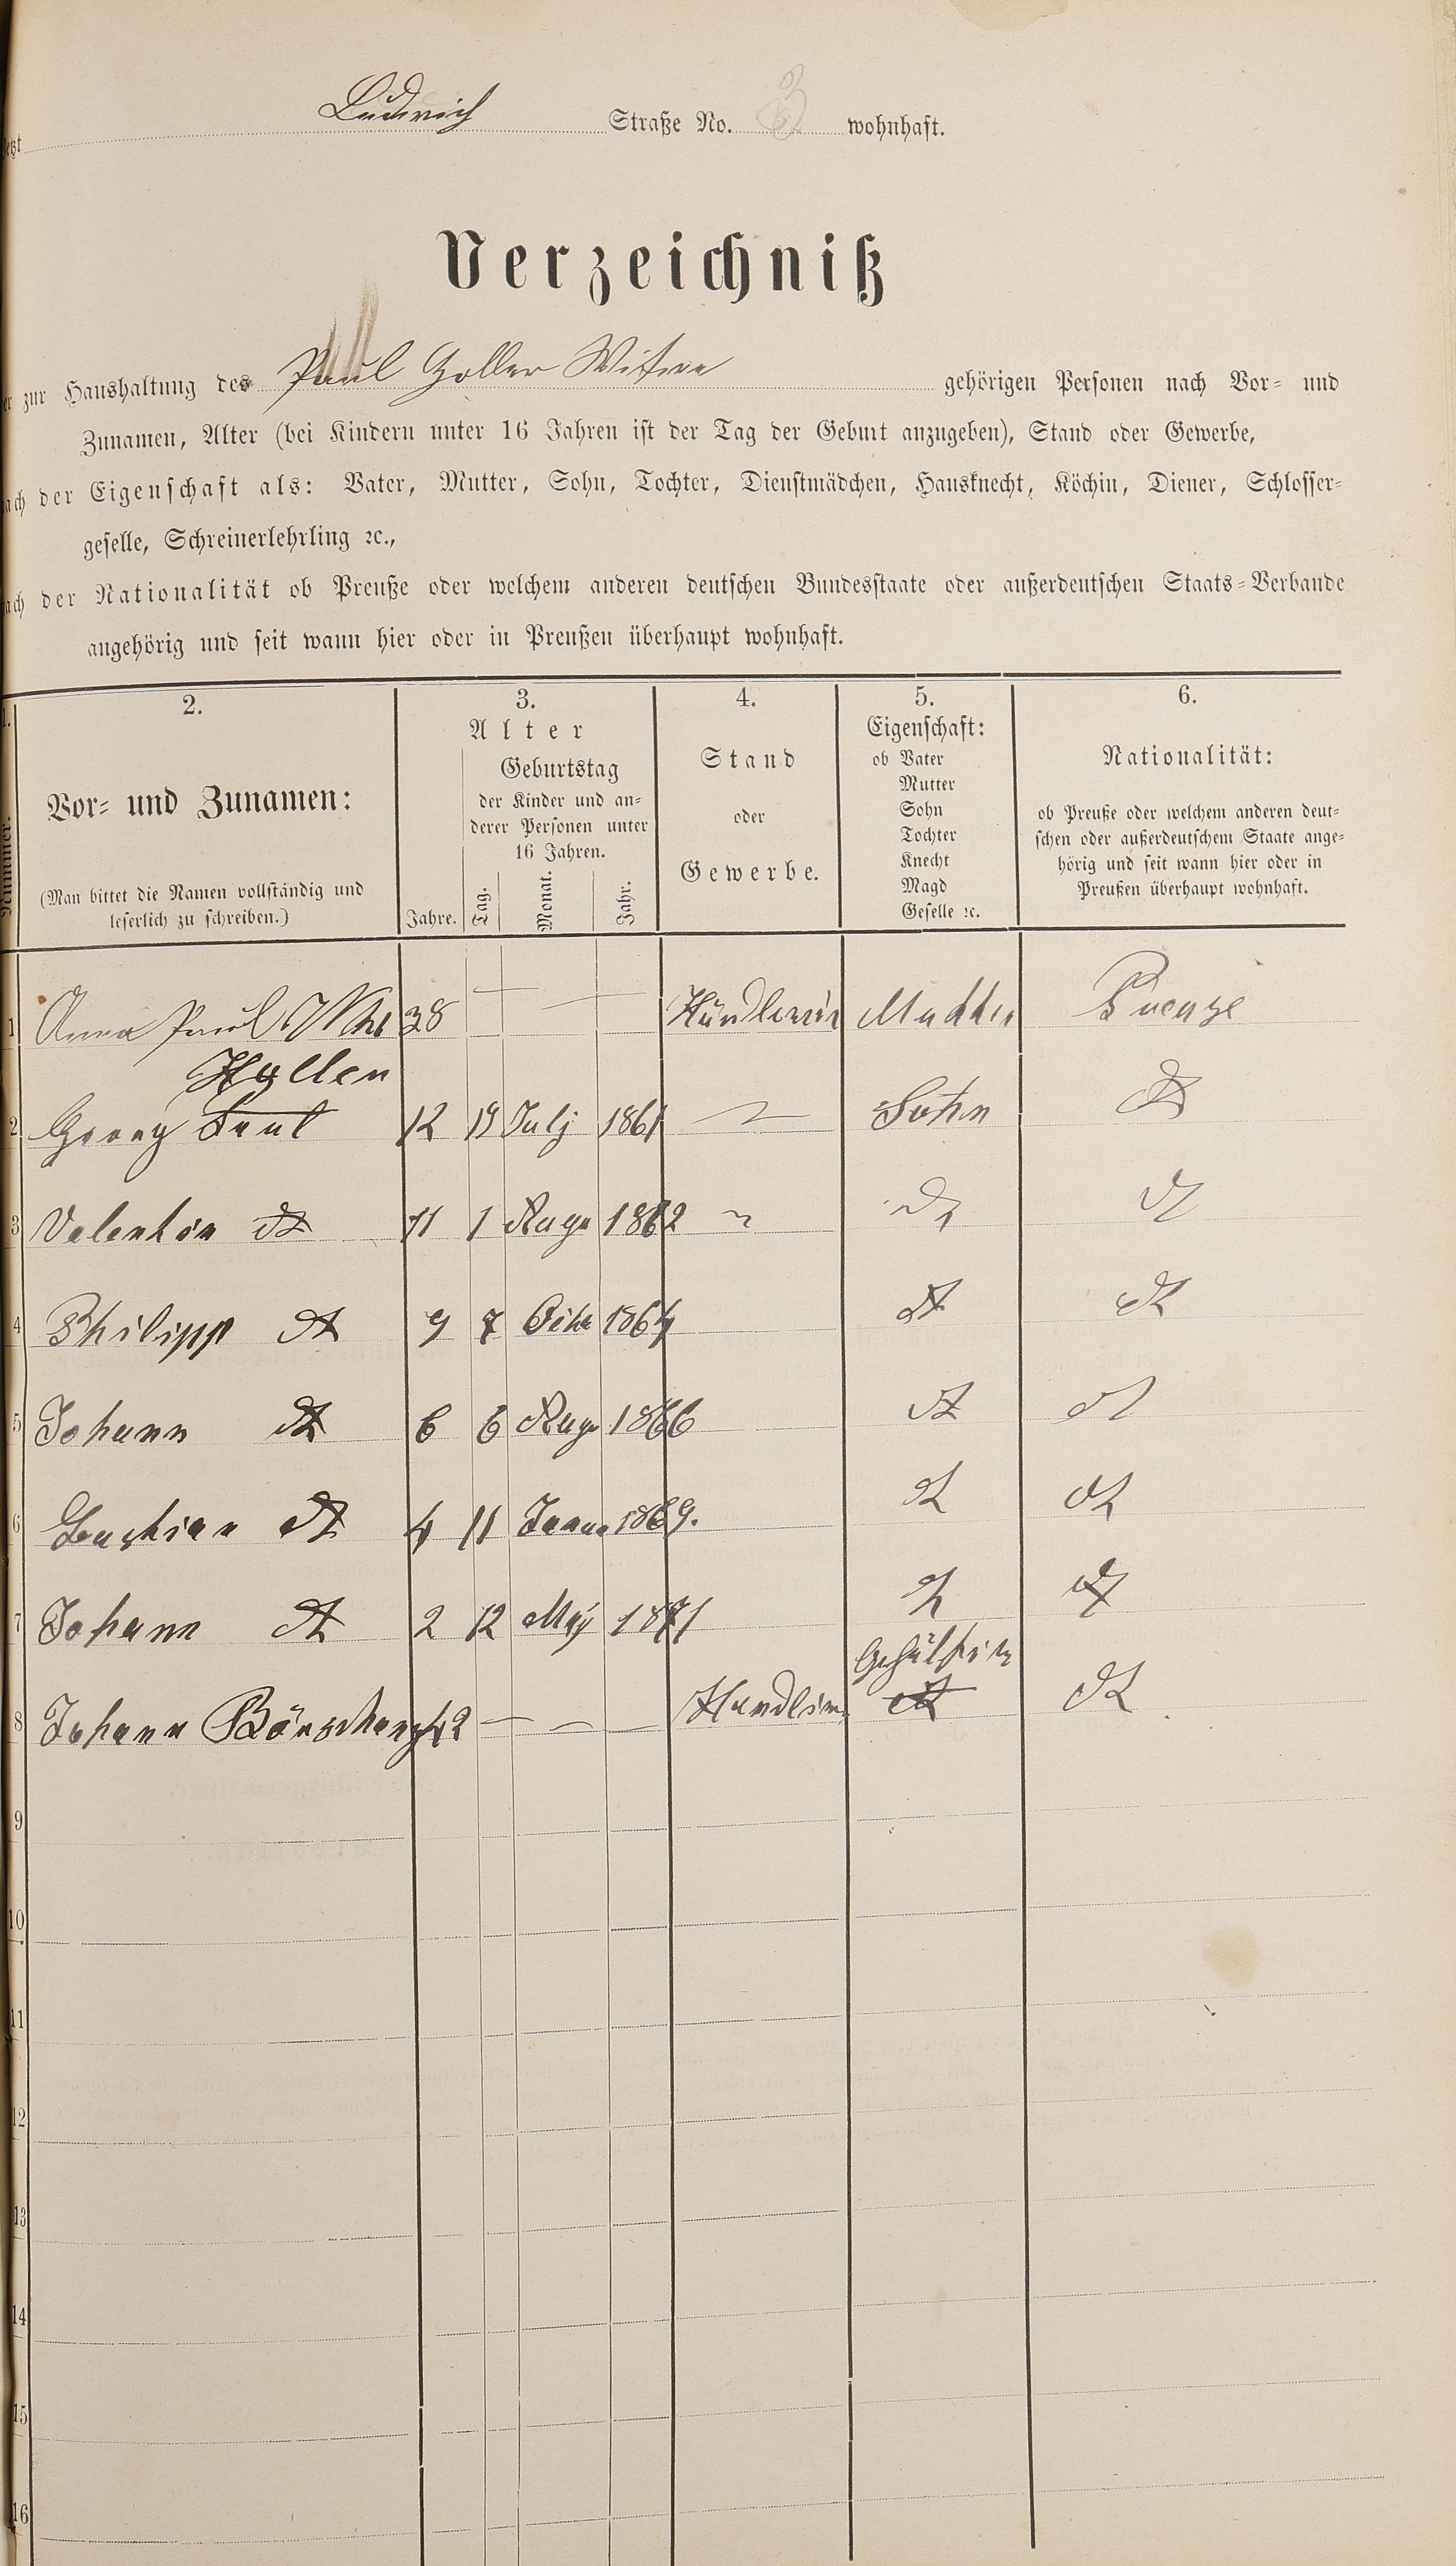 Ludwig Straße No. 3 wohnhaft.
Verzeichniß
zur Haushaltung des Paul Goller Witwe gehörigen Personen nach Vor- und
Zunamen, Alter (bei Kindern unter 16 Jahren ist der Tag der Geburt anzugeben), Stand oder Gewerbe,
der Eigenschaft als: Vater, Mutter, Sohn, Tochter, Dienstmädchen, Hausknecht, Köchin, Diener, Schlosser-
geselle, Schreinerlehrling ꝛc.,
der Nationalität ob Preuße oder welchem anderen deutschen Bundesstaate oder außerdeutschen Staats-Verbande
angehörig und seit wann hier oder in Preußen überhaupt wohnhaft.
1. 2. 3. 4. 5. 6.
Nummer.
Vor- und Zunamen:
(Man bittet die Namen vollständig und
leserlich zu schreiben.)
Alter
Geburtstag
der Kinder und an-
derer Personen unter
16 Jahren.
Jahre. Tag. Monat. Jahr.
Stand
oder
Gewerbe.
Eigenschaft:
ob Vater
Mutter
Sohn
Tochter
Knecht
Magd
Geselle ꝛc.
Nationalität:
ob Preuße oder welchem anderen deut-
schen oder außerdeutschem Staate ange-
hörig und seit wann hier oder in
Preußen überhaupt wohnhaft.
1 Anna Paul 38 — — Händlerin Mutter
Hollen
2 Georg Paul 12 19 Julj 1861 — Sohn dt
3 Valentin dt 11 1 Augu 1862 dt dt
4 Philipp dt 9 7 1864 dt dt
5 Johann dt 6 6 Augu 1866 dt dt
6 dt 4 11 Janua 1869. dt dt
7 Johann dt 2 12 Maij 1871 dt dt
Gehülfin
8 Johann 42 — — — Handlin dt dt
9
10
11
12
13
14
15
16